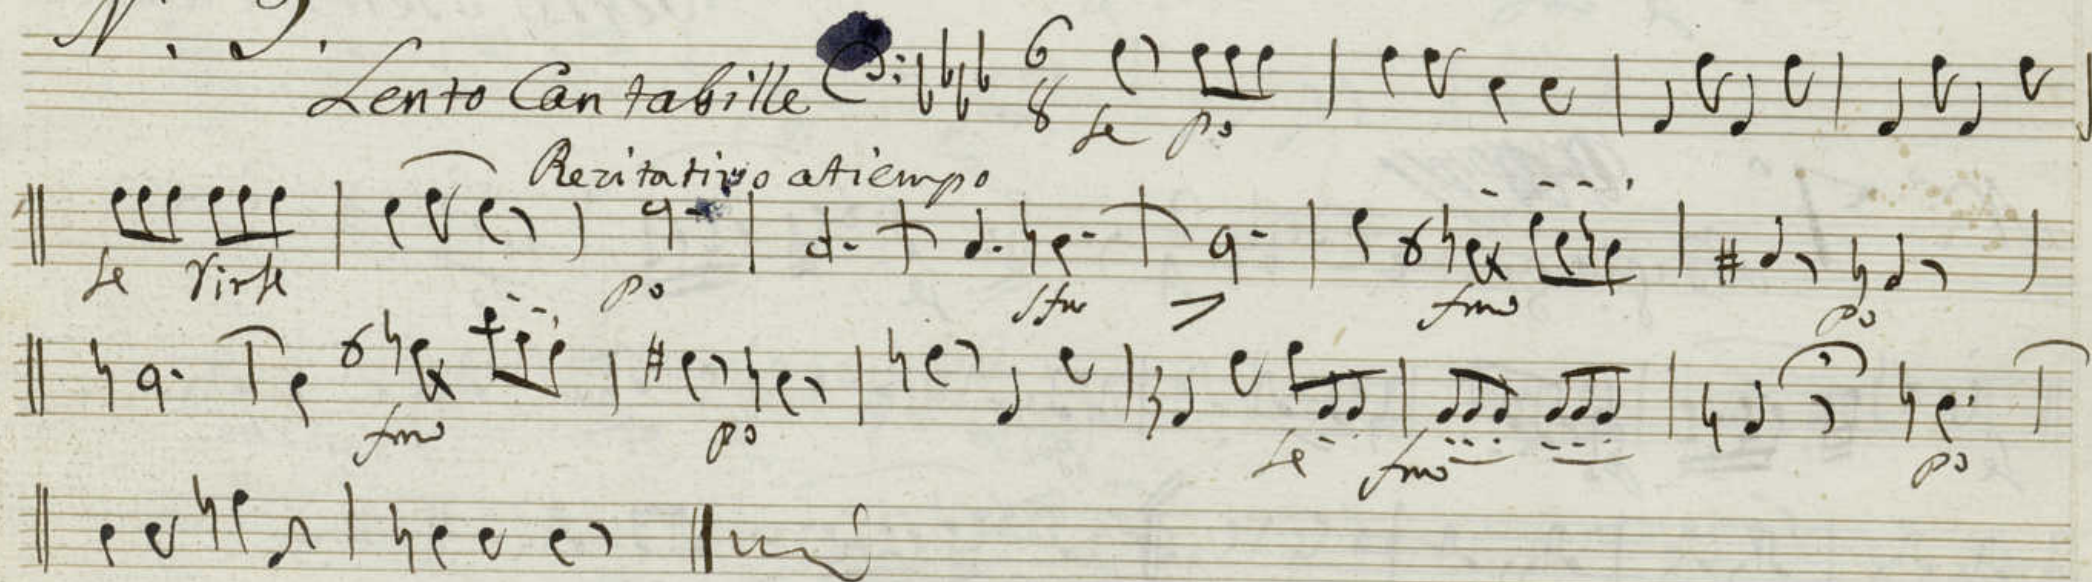 N. 9.
Lento Cantabille 6 8
Le po
Rezitativo atiempo
Le po
fmo po
fmo po
Le fmo po